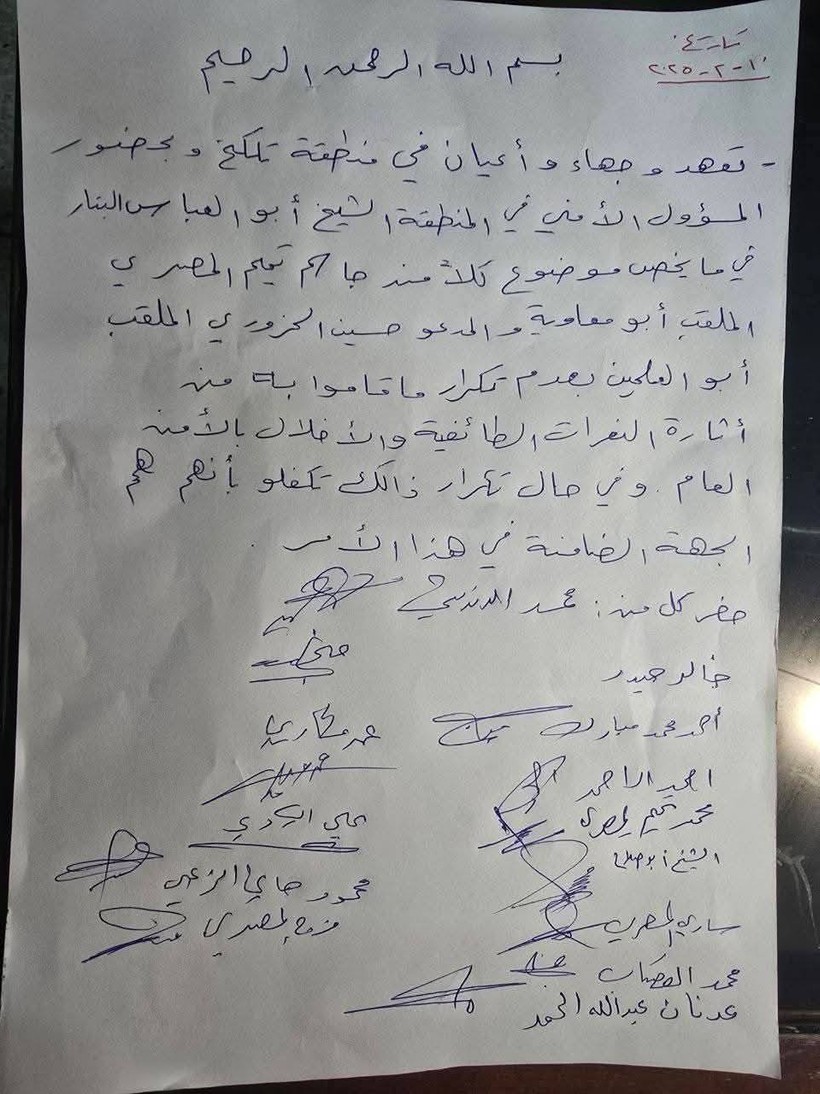 تاريخ
١٠-٢-٢٠٢٥
بسم الله الرحمن الرحيم
- تعهد وجهاء وأعيان في منطقة تلكلخ وبحضور
المسؤول الأمني في المنطقة الشيخ أبو العباس البنار
في ما يخص موضوع كلاً من جاسم تميم المصري
الملقب أبو معاوية والمدعو حسين الحزوري الملقب
أبو العلمين بعدم تكرار ما قاموا به من
أثارة النعرات الطائفية والأخلال بالأمن
العام . وفي حال تكرار ذالك تكفلو بأنهم هم
الجهة الضامنة في هذا الأمر .
حضر كل من : محمد الدندشي
خالد حيدر
أحمد محمد مبارك
عمر مكاري
احمد الاحمد
محمد تميم المصري
علي
الشيخ
محمود حاي الزعبي
ساري المصري
فرج المصري
محمد
عدنان عبدالله الحمد